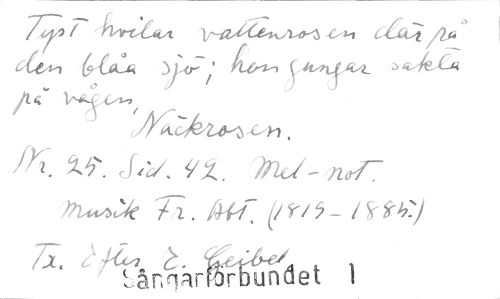 Tyst hvilar vattenrosen där på
den blåa sjö; hon gungar sakta
på vågen,
Näckrosen.
Nr. 25. Sid. 42. Mel-not.
Musik Fr. Abt. (1819-1885.)
Tx. Efter E. Geibel
Sångarförbundet 1